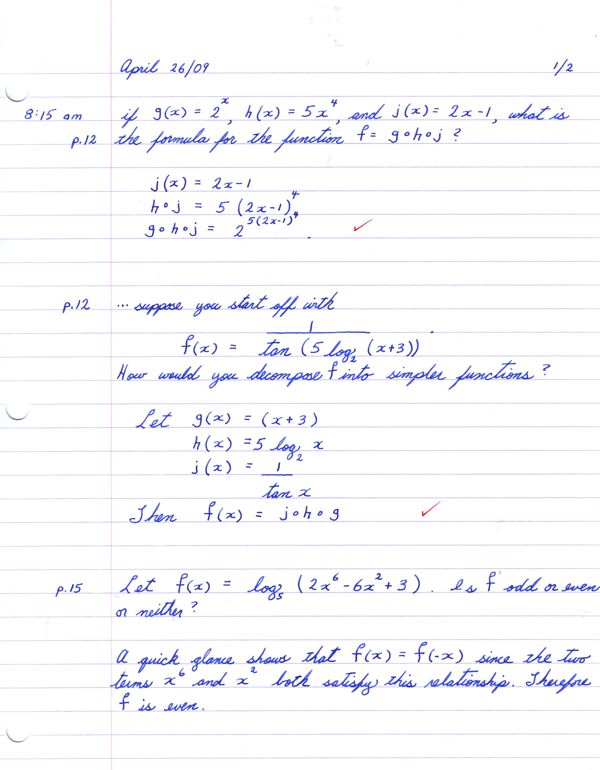 April 26/09 1/2
8:15 am if g(x) = 2^x, h(x) = 5x^4, and j(x) = 2x-1, what is
p.12 the formula for the function f = g∘h∘j ?
j(x) = 2x-1
h∘j = 5 (2x-1)^4
g∘h∘j = 2^(5(2x-1)^4) .
p.12 ... suppose you start off with
f(x) = 1 / tan (5 log₂ (x+3)) .
How would you decompose f into simpler functions?
Let g(x) = (x+3)
h(x) = 5 log₂ x
j(x) = 1 / tan x
Then f(x) = j∘h∘g
p.15 Let f(x) = log₅ (2x⁶-6x²+3). Is f odd or even
or neither?
A quick glance shows that f(x) = f(-x) since the two
terms x⁶ and x² both satisfy this relationship. Therefore
f is even.